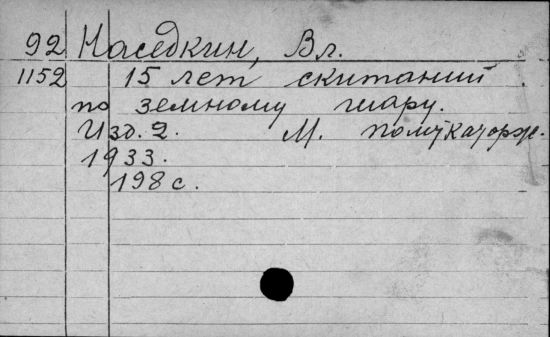 92 Наседкин, Вл.
1152 15 лет скитаний
по земному шару.
Изд. 2. М. Политкаторж.
1933.
198 с.